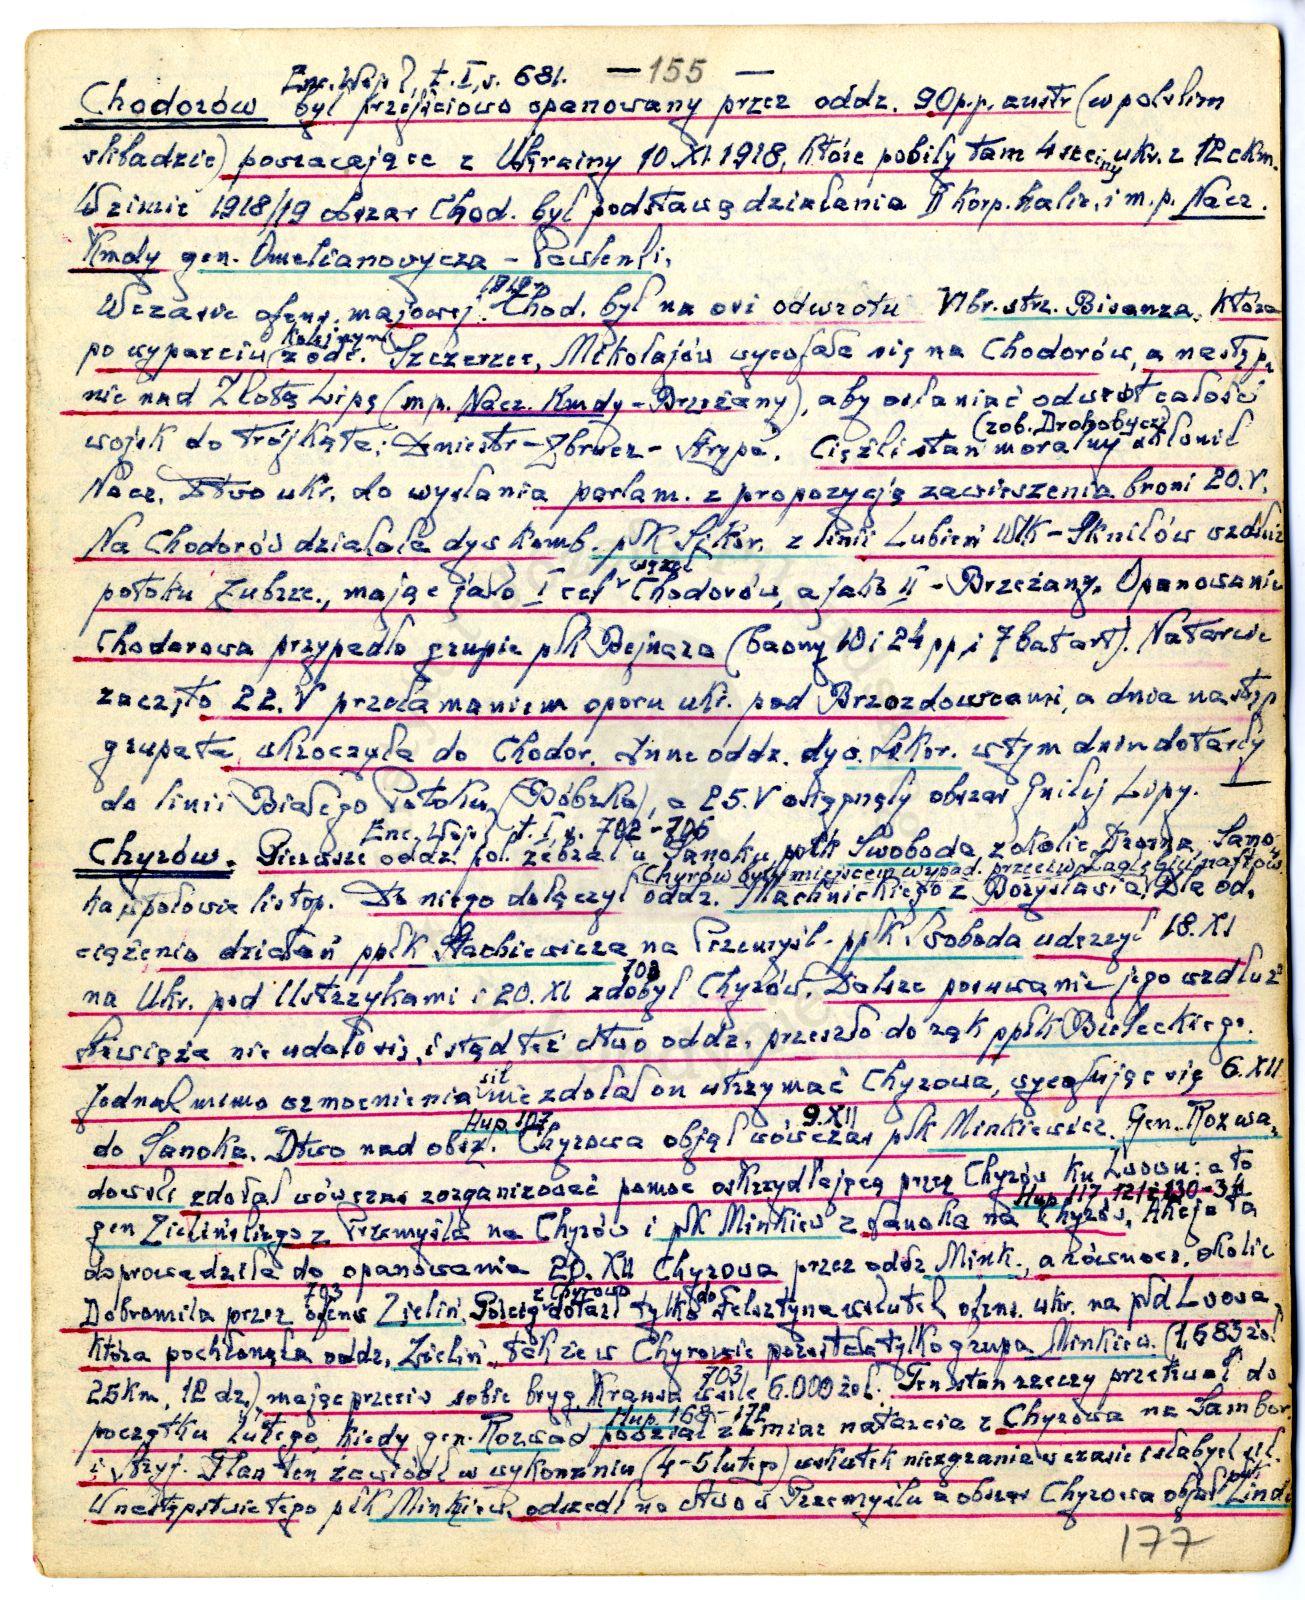 — 155 —
Enc. Wojsk, t. I, s. 681.
Chodorów był przejściowo opanowany przez oddz. 90 p.p. austr (w polskim
składzie) powracające z Ukrainy 10.XI.1918, które pobiły tam 4 ukr. z 12 ckm.
W zimie 1918/19 obszar Chod. był podstawą działania II Korp. halic. i m.p. Nacz.
Kmdy gen. Omelianowycza - Pawlenki.
1919 r.
W czasie ofens. majowej Chod. był na osi odwrotu VI br. strz. Bisanza, która
kolejnym
po wyparciu z ode. Szczerzec, Mikołajów wycofała się na Chodorów, a następ.
nie nad Złotą Lipę (m.p. Nacz. Kmdy - Brzeżany), aby osłaniać odwrót całości
(zob. Drohobycz)
wojsk do trójkąta: Dniestr - Zbrucz - Strypa. Ciężki stan moralny skłonił
Nacz. Dtwo ukr. do wysłania parlam. z propozycją zawieszenia broni 20.V.
Na Chodorów działała dyw komb. płk Sikor. z linii Lubień Wlk - Skniłów wzdłuż
węzeł
potoku Zubrze, mając jako I cel Chodorów, a jako II - Brzeżany. Opanowanie
Chodorowa przypadło grupie płk Bejnara (baony 10 i 24 pp. i 7 bat art). Natarcie
zaczęto 22.V przełamaniem oporu ukr. pod Brzozdowcami, a dnia następ
grupa ta wkroczyła do Chodor. Inne oddz. dyw. Sikor. w tym dniu dotarły
do linii Białego Potoku (Bóbrka), a 25.V osiągnęły obszar Gniłej Lipy.
Enc. Wojsk, t. I, s. 702-706
Chyrów. Pierwsze oddz. pol. zebrał u Sanoku płk Swoboda z okolic Sano-
Chyrów był miejscem wypad. przeciw Zagłębiu naftow.
ka w połowie listop. Do niego dołączył oddz. Machnickiego z Borysławia. Dla od-
ciążenia działań ppłk Stachiewicza na Przemyśl - ppłk Swoboda uderzył 18.XI
703
na Ukr. pod Ustrzykami i 20.XI zdobył Chyrów. Dalsze posuwanie jego wzdłuż
Strwiąża nie udało się, i stąd też dtwo oddz. przeszło do rąk ppłk Bieleckiego.
sił
Jednak mimo wzmocnienia nie zdołał on utrzymać Chyrowa, wycofując się 6.XII
Hup. 107 9.XII
do Sanoka. Dtwo nad obsz. Chyrowa objął wówczas płk Minkiewicz. Gen. Rozwa-
dowski zdołał wówczas zorganizować pomoc oskrzydlającą przez Chyrów ku Lwowu: a to
Hup. 117, 121 i 130-34
gen Zielińskiego z Przemyśla na Chyrów i płk Minkiew z Sanoka na Chyrów. Akcja ta
doprowadziła do opanowania 20.XII Chyrowa przez oddz Mink., a równocz. okolic
703 z Chyrowa do
Dobromila przez ofens Zieliń. Pościg dotarł tylko Felsztyna wskutek ofens. ukr. na płd Lwowa,
która pochłonęła oddz. Zieliń, także w Chyrowie pozostała tylko grupa Minkiew. (1.683 żoł
703
25 km, 12 dz.), mając przeciw sobie bryg. Krausa w sile 6.000 żoł. Ten stan rzeczy przetrwał do
Hup. 168-172
początku lutego, kiedy gen. Rozwad podjął zamiar natarcia z Chyrowa na Sambor
i Stryj. Plan ten zawiódł w wykonaniu (4-5 lutego) wskutek niezgrania w czasie i słabych sił.
płk
W następstwie tego płk Minkiew. odszedł na dtwo w Przemyślu a obszar Chyrowa objął Linde
177